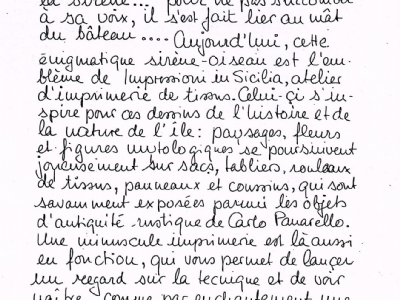 la sirène... pour ne pas succomber
à sa voix, il s'est fait lier au mât
du bâteau.... Aujourd'hui, cette
énigmatique sirène-oiseau est l'em-
blème de Impressioni in Sicilia, atelier
d'imprimerie de tissus. Celui-çi s'in-
spire pour ces dessins de l'histoire et de
la nature de l'île: paysages, fleurs
et figures mytologiques se poursuivent
joyeusement sur sacs, tabliers, rouleaux
de tissus, panneaux et coussins, qui sont
savamment exposées parmi les objets
d'antiquité rustique de Carlo Panarello.
Une minuscule imprimerie est là aussi
en fonction, qui vous permet de lançer
un regard sur la tecnique et de voir
naître, comme par enchantement une